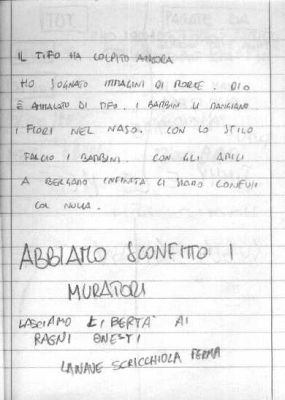 IL TIFO HA COLPITO ANCORA
HO SOGNATO IMMAGINI DI MORTE. DIO
È AMMALATO DI TIFO. I BAMBINI LI MANGIANO
I FIORI NEL NASO. CON LO STILO
TAGLIO I BAMBINI. CON GLI
A BERGAMO INFINITA CI SONO CONFINI
COL NULLA.
ABBIAMO SCONFITTO I
MURATORI
LASCIAMO LIBERTA' AI
RAGNI ONESTI
LA NAVE SCRICCHIOLA FERMA